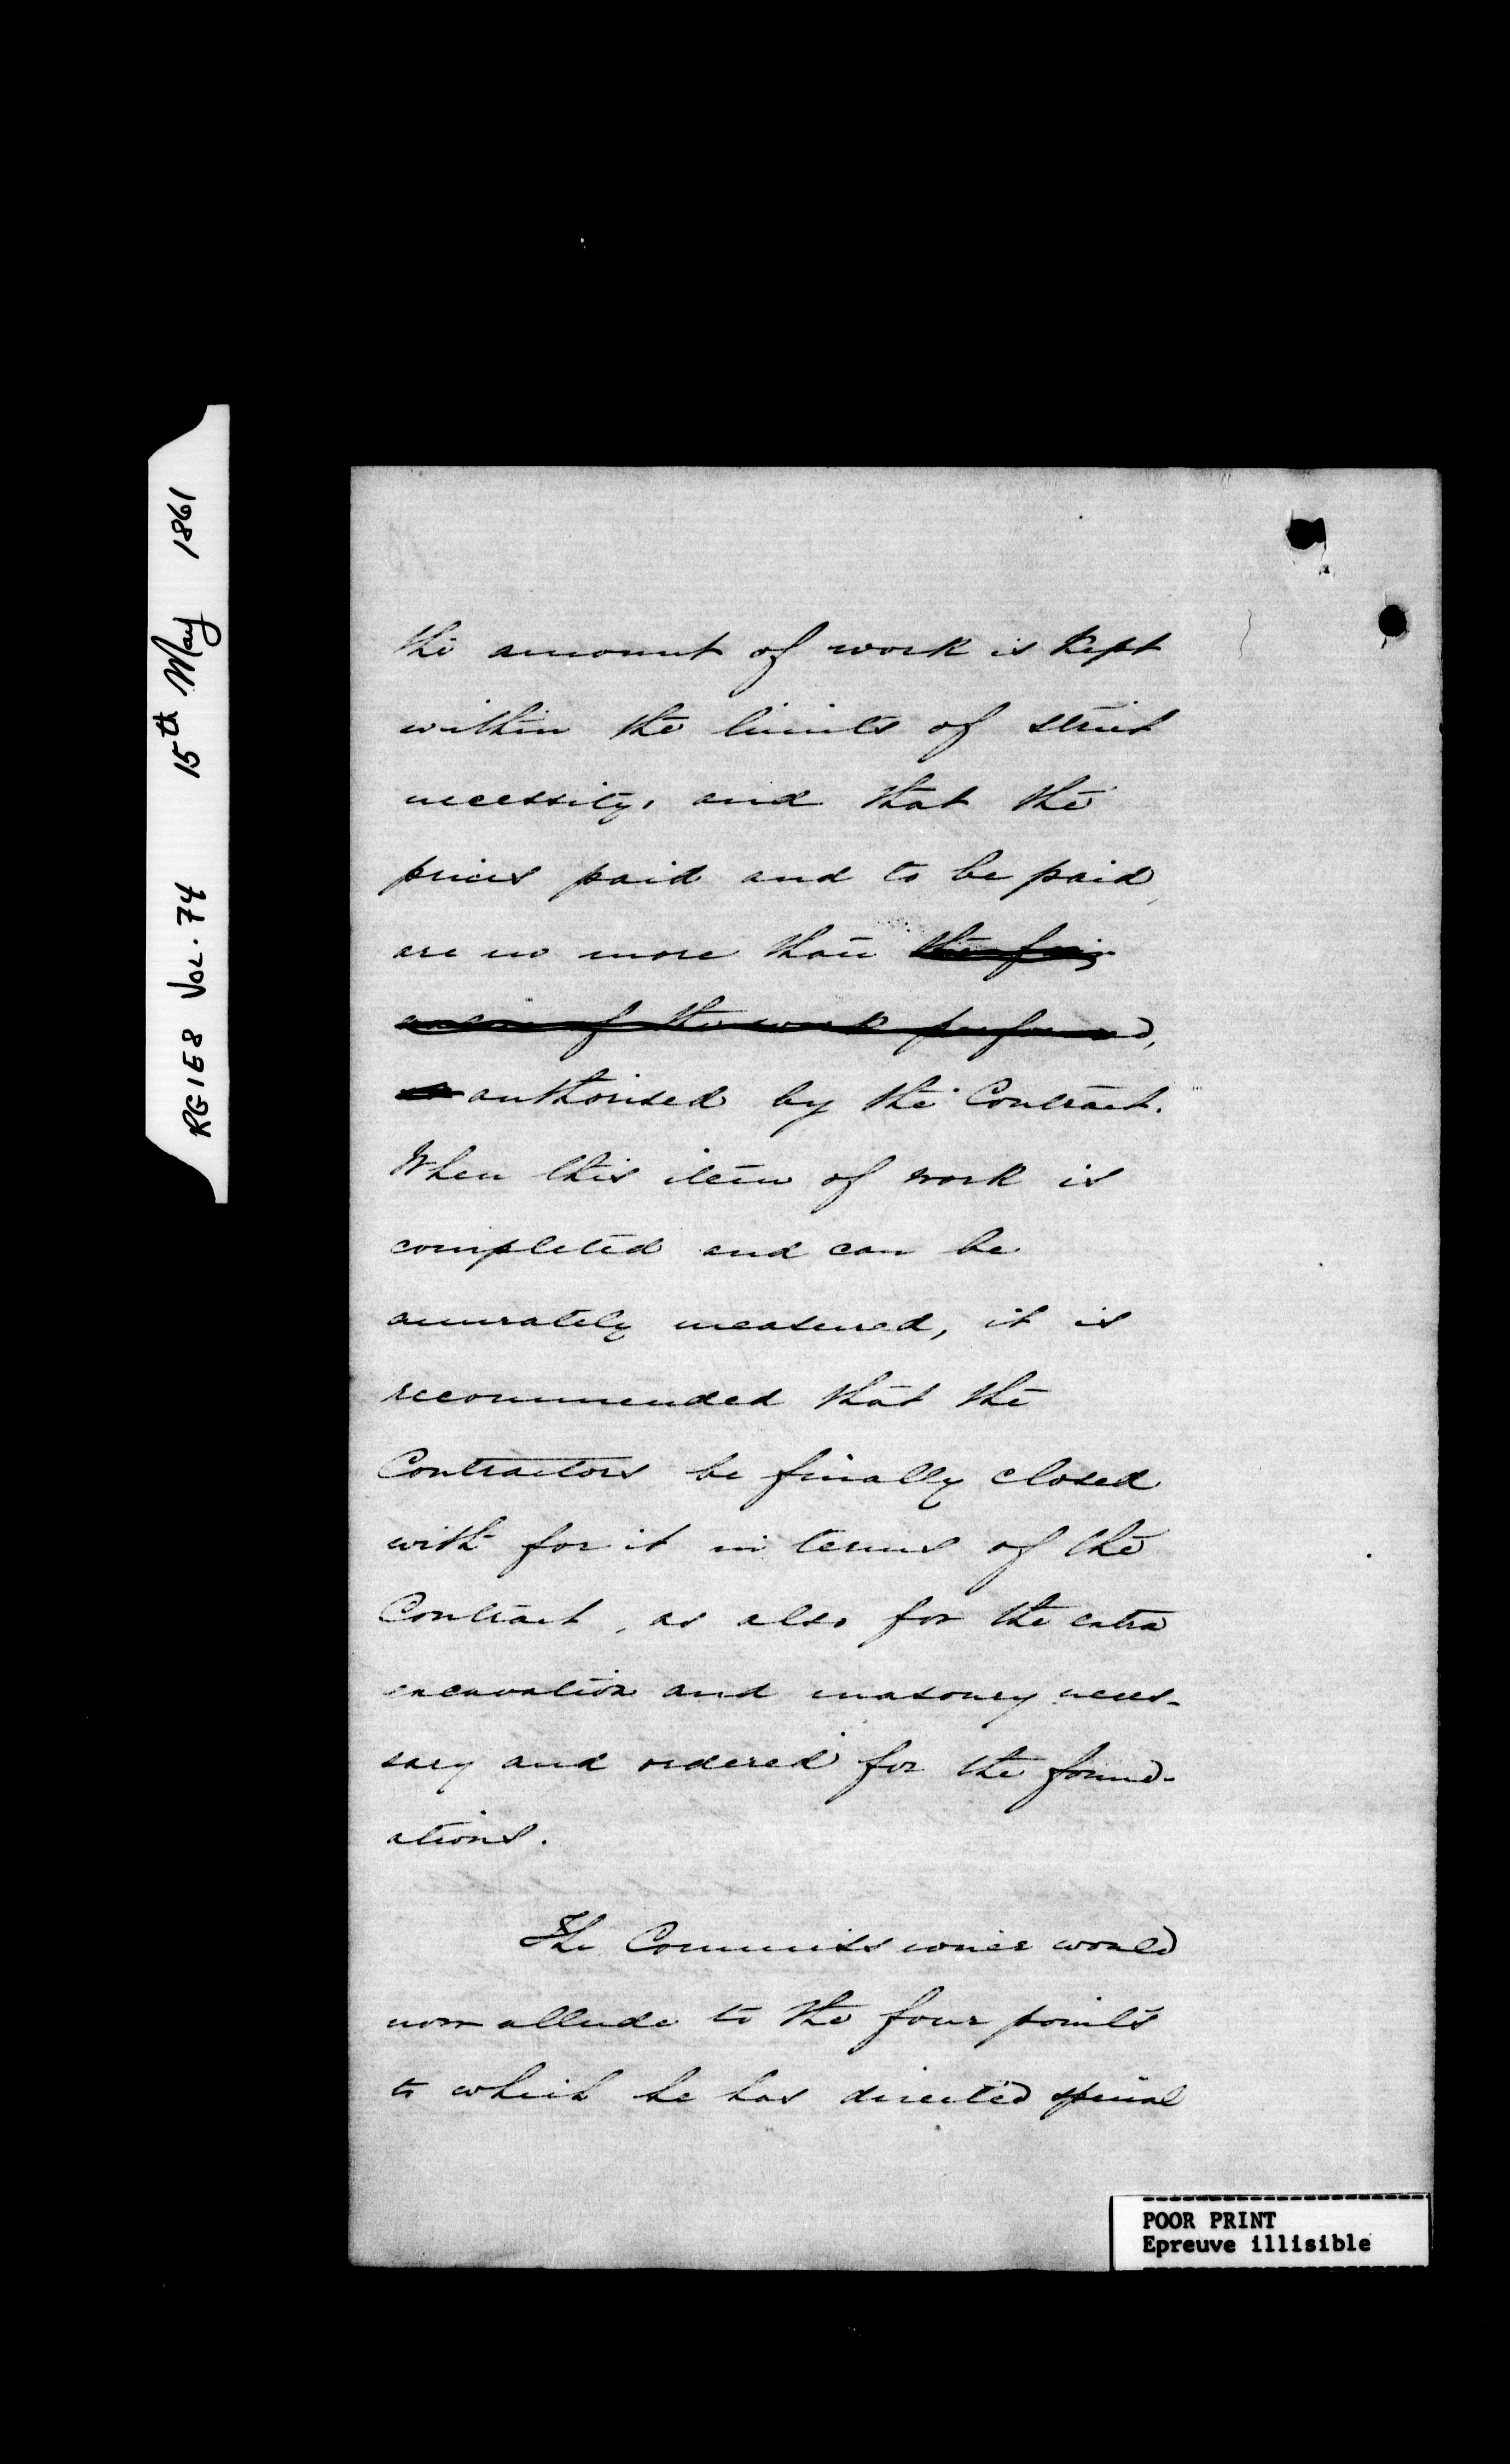 RG1E8 VOL. 74 15th May 1861
the amount of work is kept
within the limits of strict
necessity, and that the
prices paid and to be paid,
are no more than the fair
value of the work performed,
authorised by the Contract.
When this item of work is
completed and can be
accurately measured, it is
recommended that the
Contractors be finally closed
with for it in terms of the
Contract, as also for the extra
excavation and masonry neces-
sary and ordered for the found-
ations.
The Commissioner would
now allude to the four points
to which he has directed special
POOR PRINT
Epreuve illisible